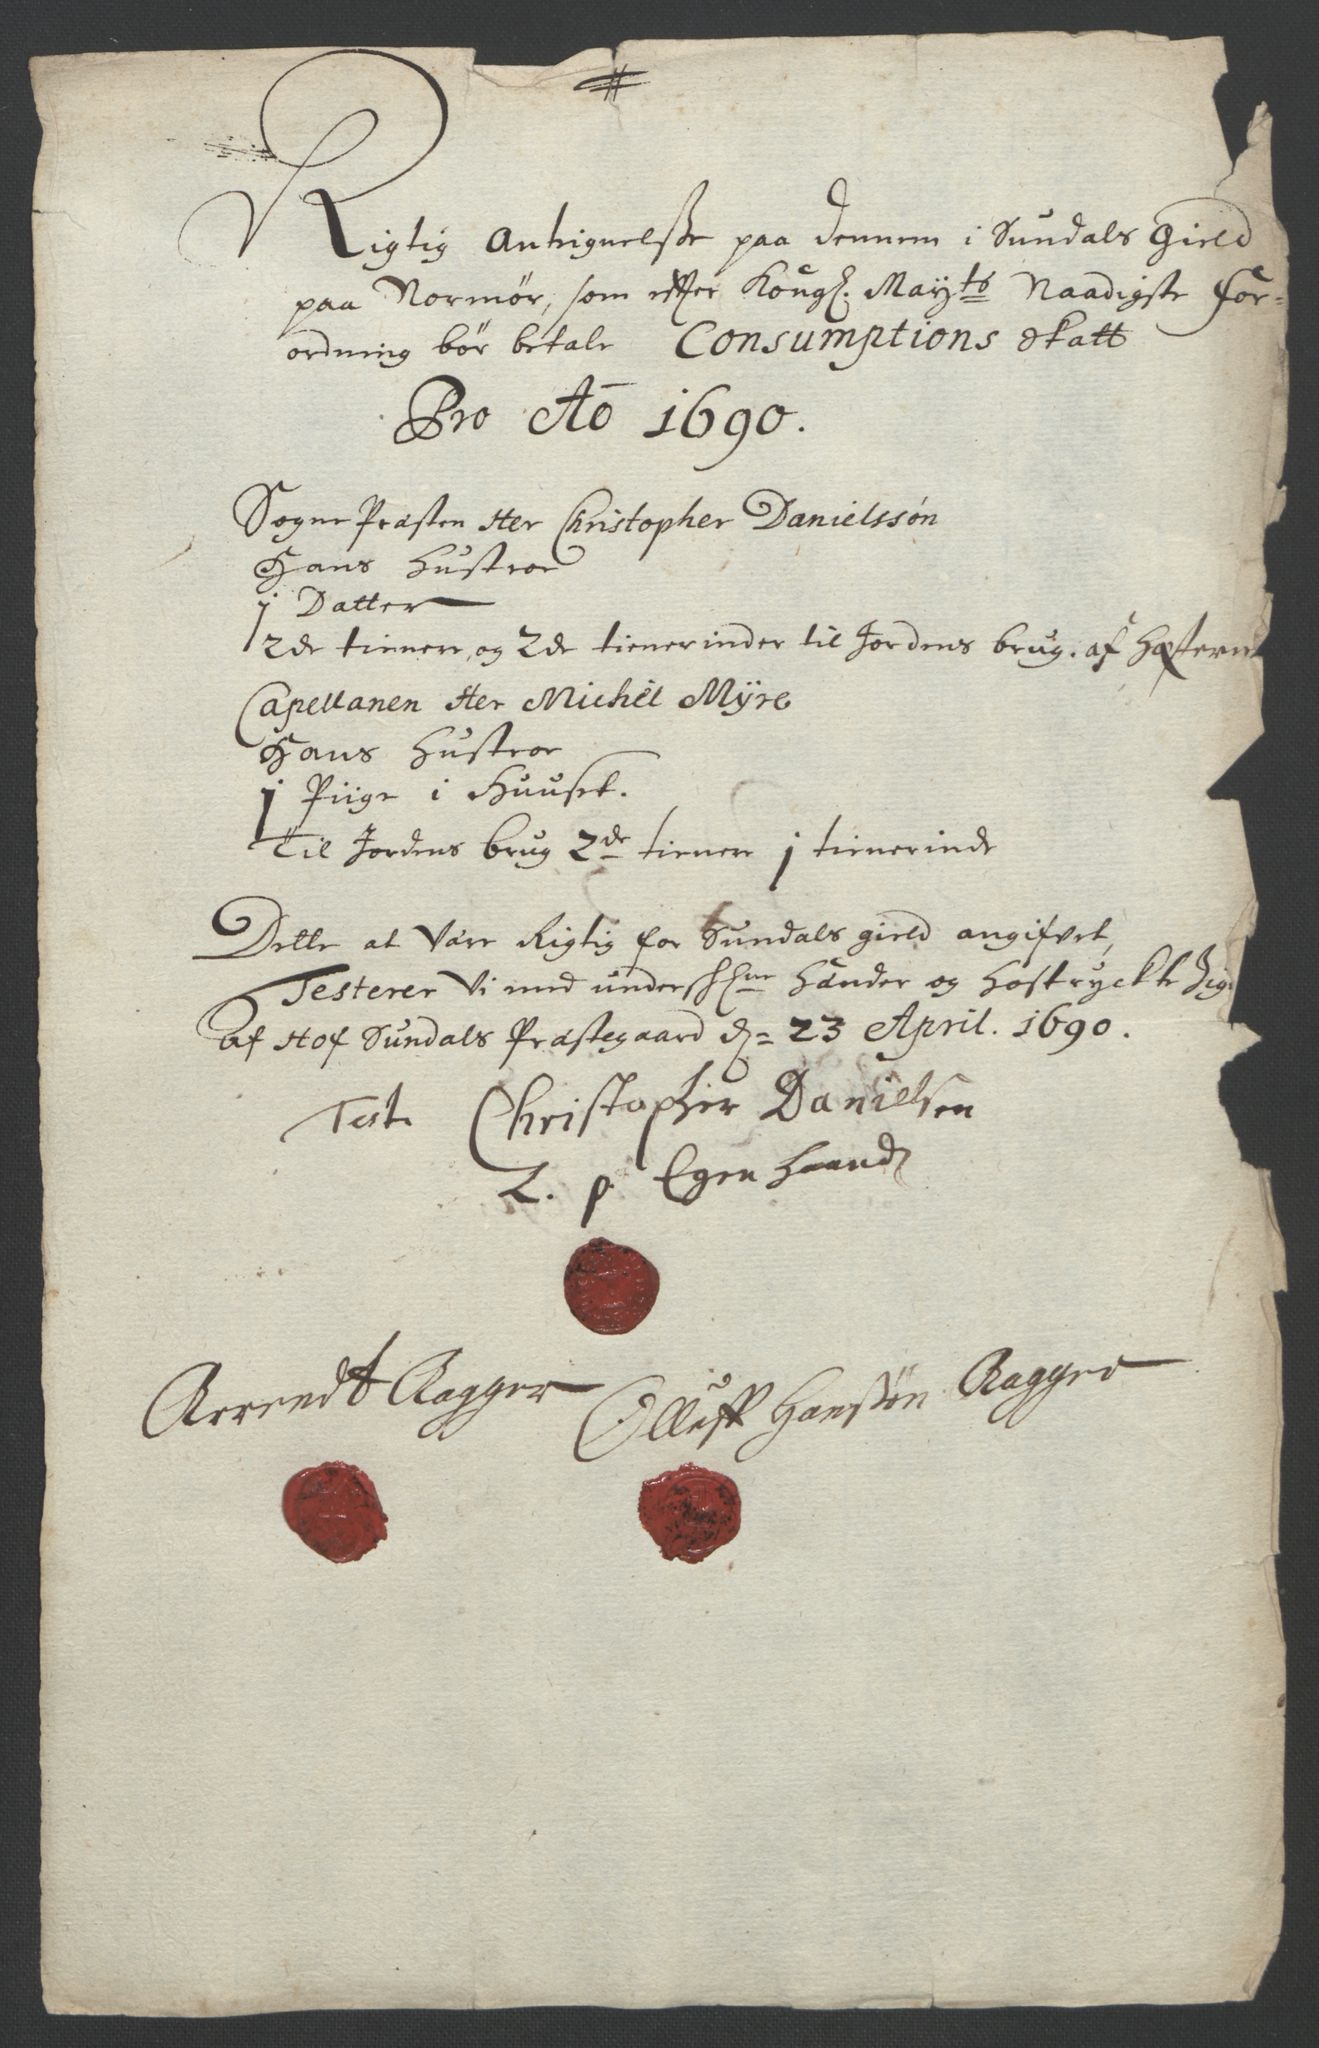 Rigtig Antiguelsse paa dennem i Sundals Gield
paa Normør, som effter Kongl. Mayts Naadigste For=
ordning bør betale Consumptions skatt
Pro Ao 1690.
Sogne Præsten Her Christopher Danielssøn
Hans Hustroe
1 Datter
2de tienere og 2de tienerinder til Jordens brug. af
Capellanen Her Michel Myre
Hans Hustroe
1 Piige i Huuset.
Til Jordens brug 2de tienere 1 tienerinde
Dette at være Rigtig for Sundals gield angifvet,
Testerer Vi med underschrne Hænder og hostryckte Zig
af Hof Sundals Præstegaard d. 23 April. 1690.
Test Christopher Danielsen
L. p Egen haand
Arrendt Aagger Olluff Hanssøn Aagger